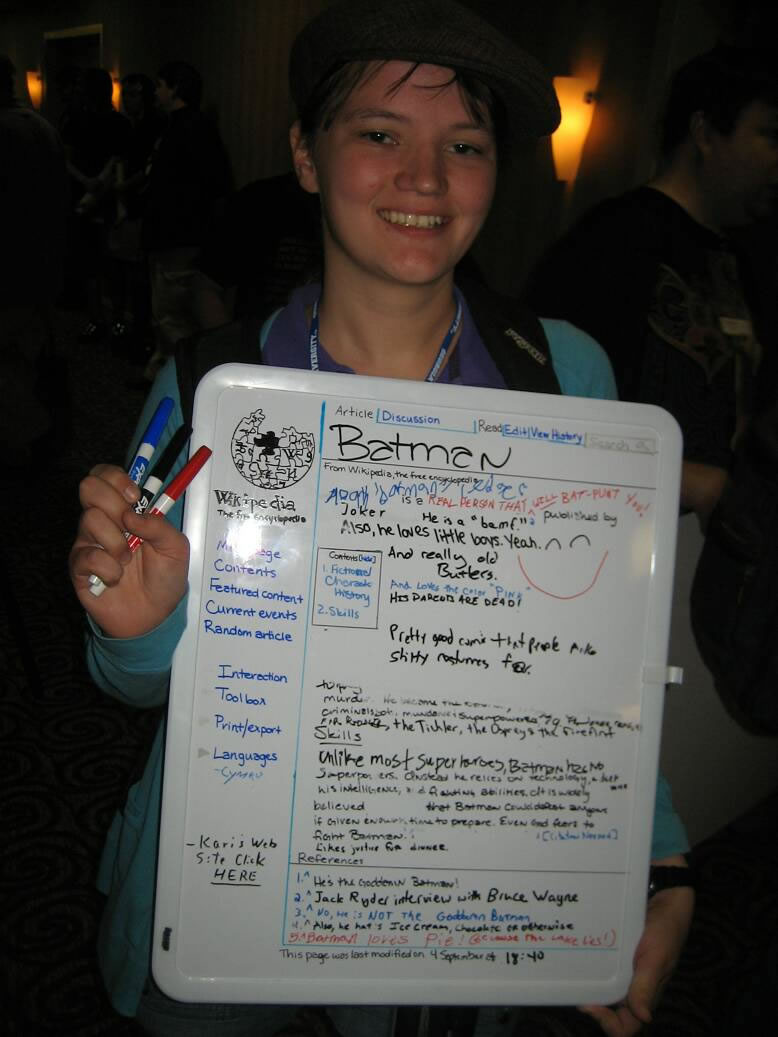 Article Discussion Read Edit View History Search
Batman
From Wikipedia, the free encyclopedia
WIKIPEDIA
The free encyclopedia
Contents
Featured content
Current events
Random article
Interaction
Toolbox
Print/export
Languages
Cymru
- Kari's Web
Site Click
HERE
is a REAL PERSON THAT WILL BAT-PUNT YOU!
Joker He is a "bamf."2 published by
Also, he loves little boys. Yeah.
And really old
Butlers.
And Loves the color "Pink"
HIS PARENTS ARE DEAD!
Contents [hide]
1. Fictional
Character
History
2. Skills
Pretty good comic that people make
shitty costumes for.
the Tickler, the Osprey & the Firefist
Skills
Unlike most superheroes, Batman has no
superpowers. Instead he relies on technology,
his intelligence, and fighting abilities. It is widely
believed that Batman could defeat anyone
if given enough time to prepare. Even God fears to
fight Batman. [Citation Needed]
Likes justice for dinner.
References
1.^ He's the Goddamn Batman!
2.^ Jack Ryder interview with Bruce Wayne
3.^ No, he is NOT the Goddamn Batman
4.^ Also, he hates Ice Cream, chocolate or otherwise
5.^ Batman loves Pie! (because the cake lies!)
This page was last modified on 4 September at 18:40
VERSITY.